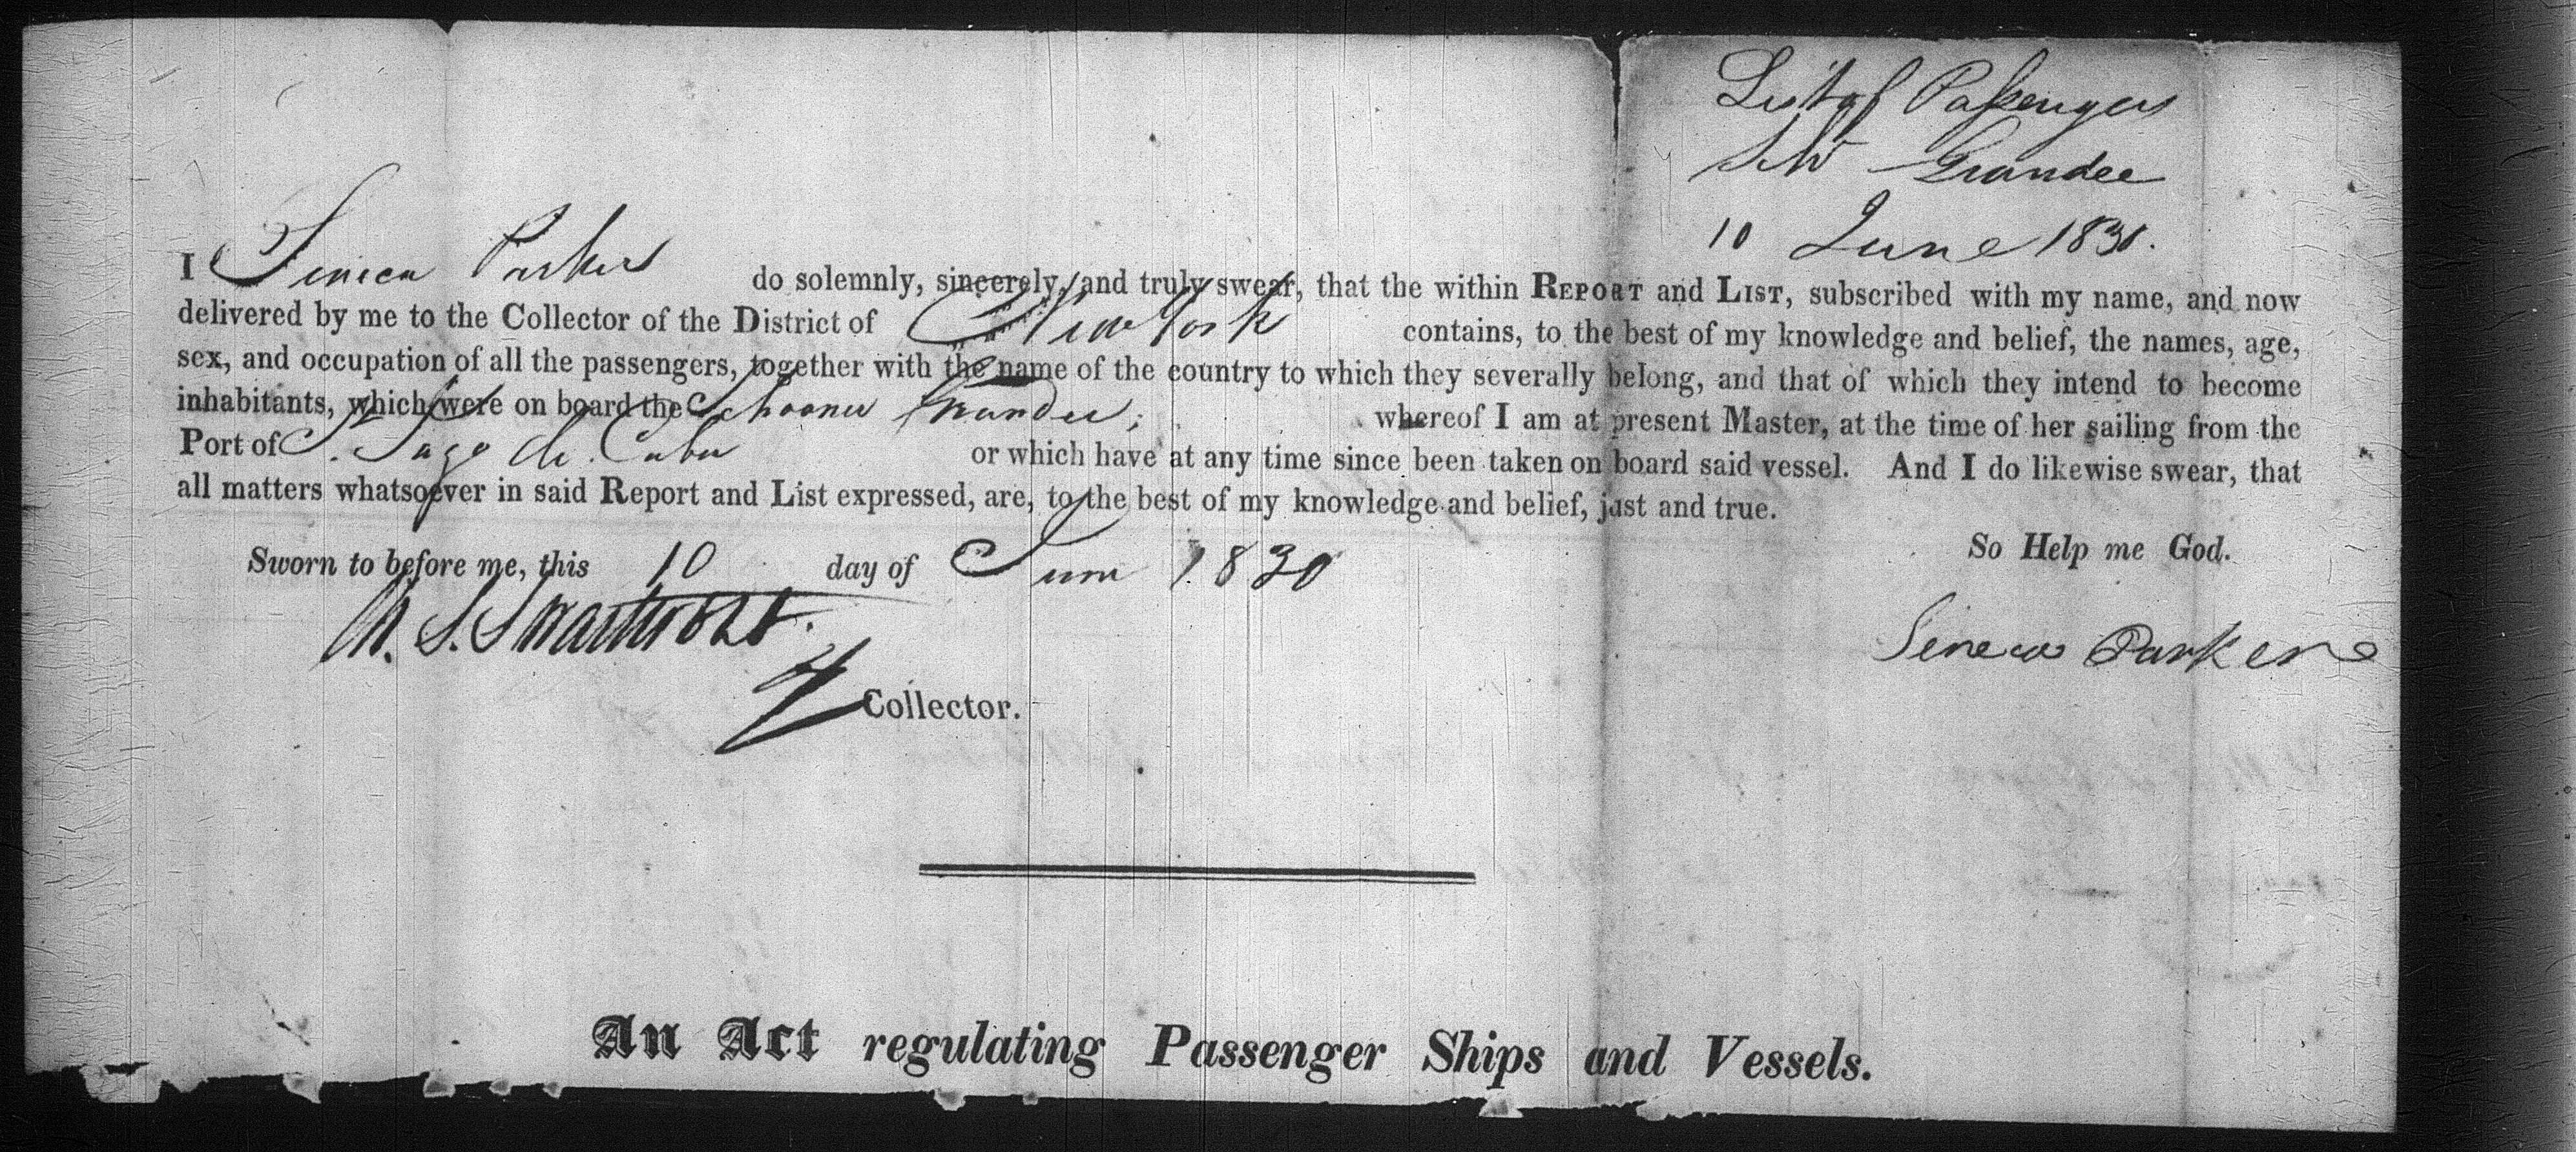 List of Passengers
Schr Grandee
10 June 1830.
I Seneca Parker do solemnly, sincerely, and truly swear, that the within REPORT and LIST, subscribed with my name, and now
delivered by me to the Collector of the District of New York contains, to the best of my knowledge and belief, the names, age,
sex, and occupation of all the passengers, together with the name of the country to which they severally belong, and that of which they intend to become
inhabitants, which were on board the Schooner Grandee; whereof I am at present Master, at the time of her sailing from the
Port of St. Jago de Cuba or which have at any time since been taken on board said vessel. And I do likewise swear, that
all matters whatsoever in said Report and List expressed, are, to the best of my knowledge and belief, just and true.
So Help me God.
Sworn to before me, this 10 day of June 1830
M. S. Swartwout.
Seneca Parker
Collector.
An Act regulating Passenger Ships and Vessels.